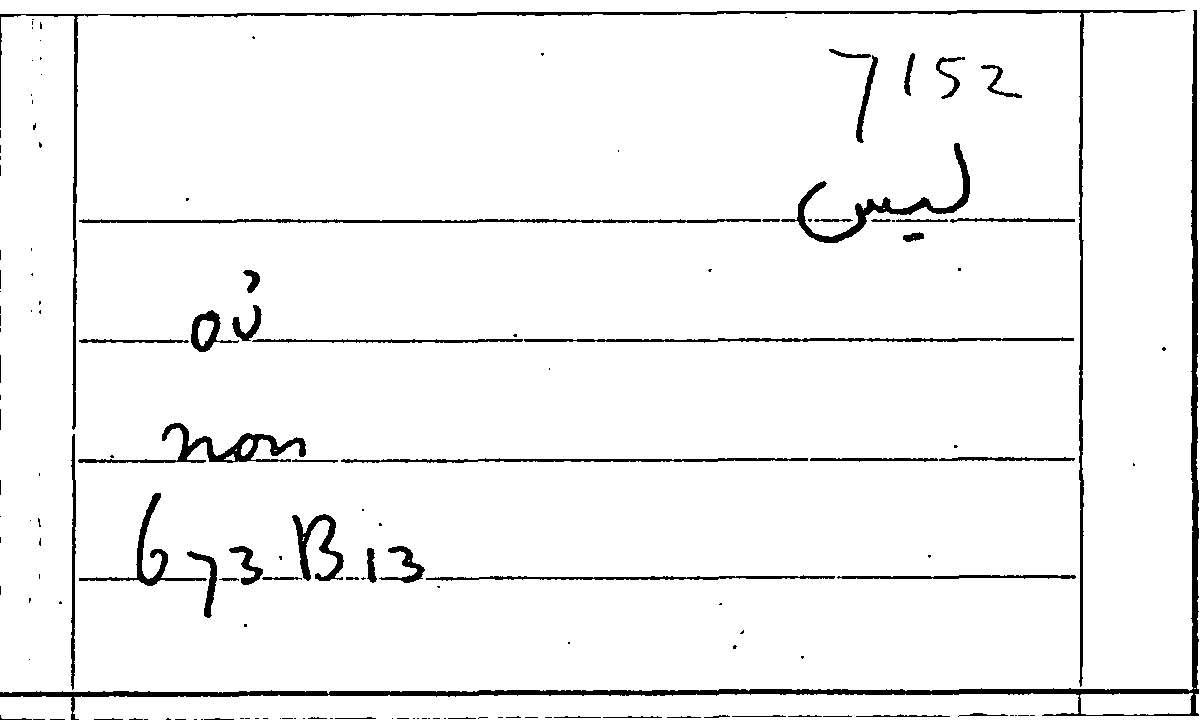 7152
ليس
οὐ
non
673 B 13